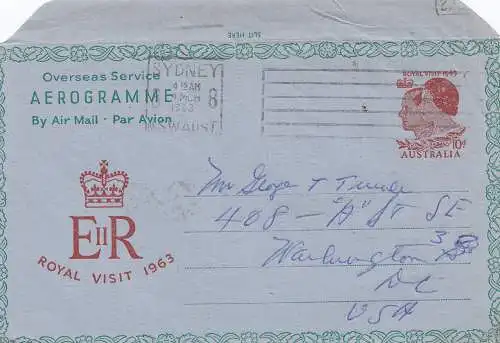 SLIT HERE
Overseas Service
AEROGRAMME
By Air Mail · Par Avion
SYDNEY
AM
MCH
1963
8
N.S.W. AUST
ROYAL VISIT 1963
10d
AUSTRALIA
EIIR
ROYAL VISIT 1963
Mr George T
408 - "A" St SE
Washington 3
DC
USA